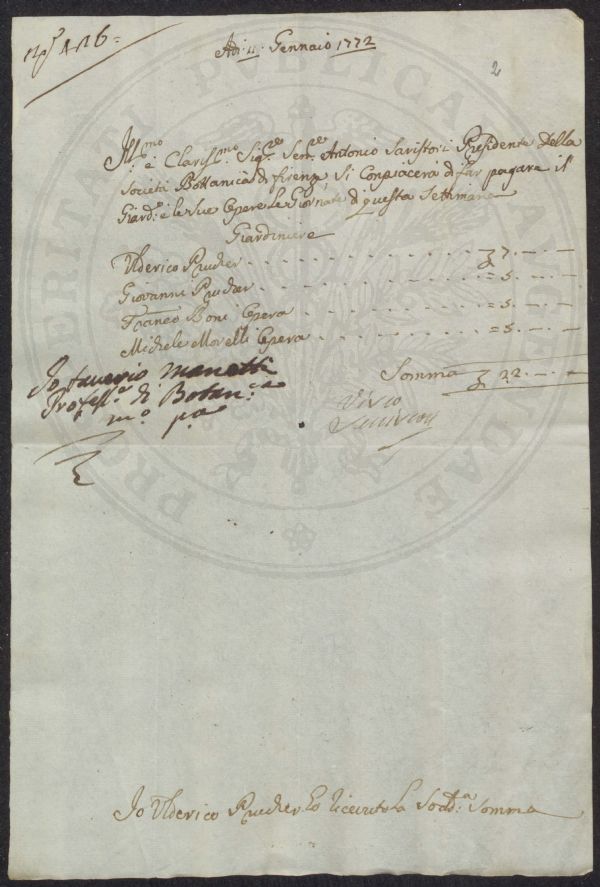 416=
Adi: 11: Gennaio 1772
2
Ill:mo e Clariss:mo Sig:re Sen:re Antonio Saristori Presidente Della
Società Bottanica di firenze Si Conpiacerà di far pagare il
Giard:e e le Sue Opere le Giornate di questa Settimana
Giardiniere
Ulderico Prucker 7. — . —
Giovanni Prucker = 5. — . —
Franco Boni Opera = 5. — . —
Michele Morelli Opera = 5. — . —
Somma 22. — . —
Io Saverio Manetti
Profess:e di Botan:ca
m:o p:a
Visto
Io Ulderico Prucker ho riceuto la Sod:a Somma
PRO UTILITATI PUBLICAE